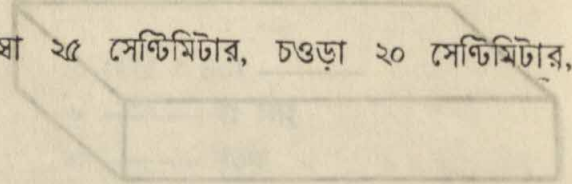 ২৫ সেণ্টিমিটার, চওড়া ২০ সেণ্টিমিটার,